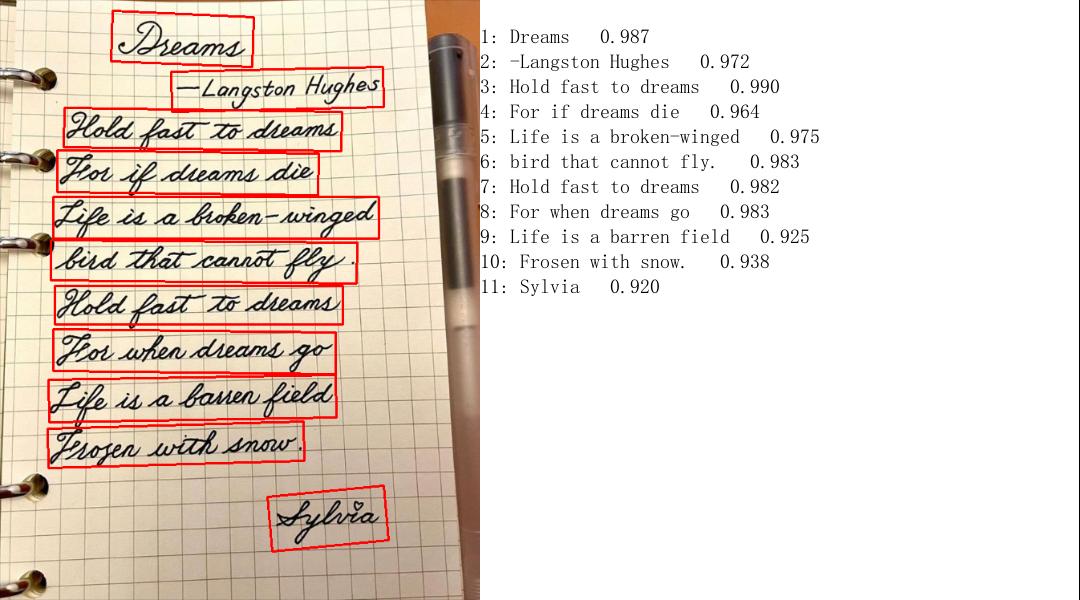 Dreams
—Langston Hughes
Hold fast to dreams
For if dreams die
Life is a broken-winged
bird that cannot fly.
Hold fast to dreams
For when dreams go
Life is a barren field
Frozen with snow.
Sylvia
1: Dreams 0.987
2: -Langston Hughes 0.972
3: Hold fast to dreams 0.990
4: For if dreams die 0.964
5: Life is a broken-winged 0.975
6: bird that cannot fly. 0.983
7: Hold fast to dreams 0.982
8: For when dreams go 0.983
9: Life is a barren field 0.925
10: Frosen with snow. 0.938
11: Sylvia 0.920